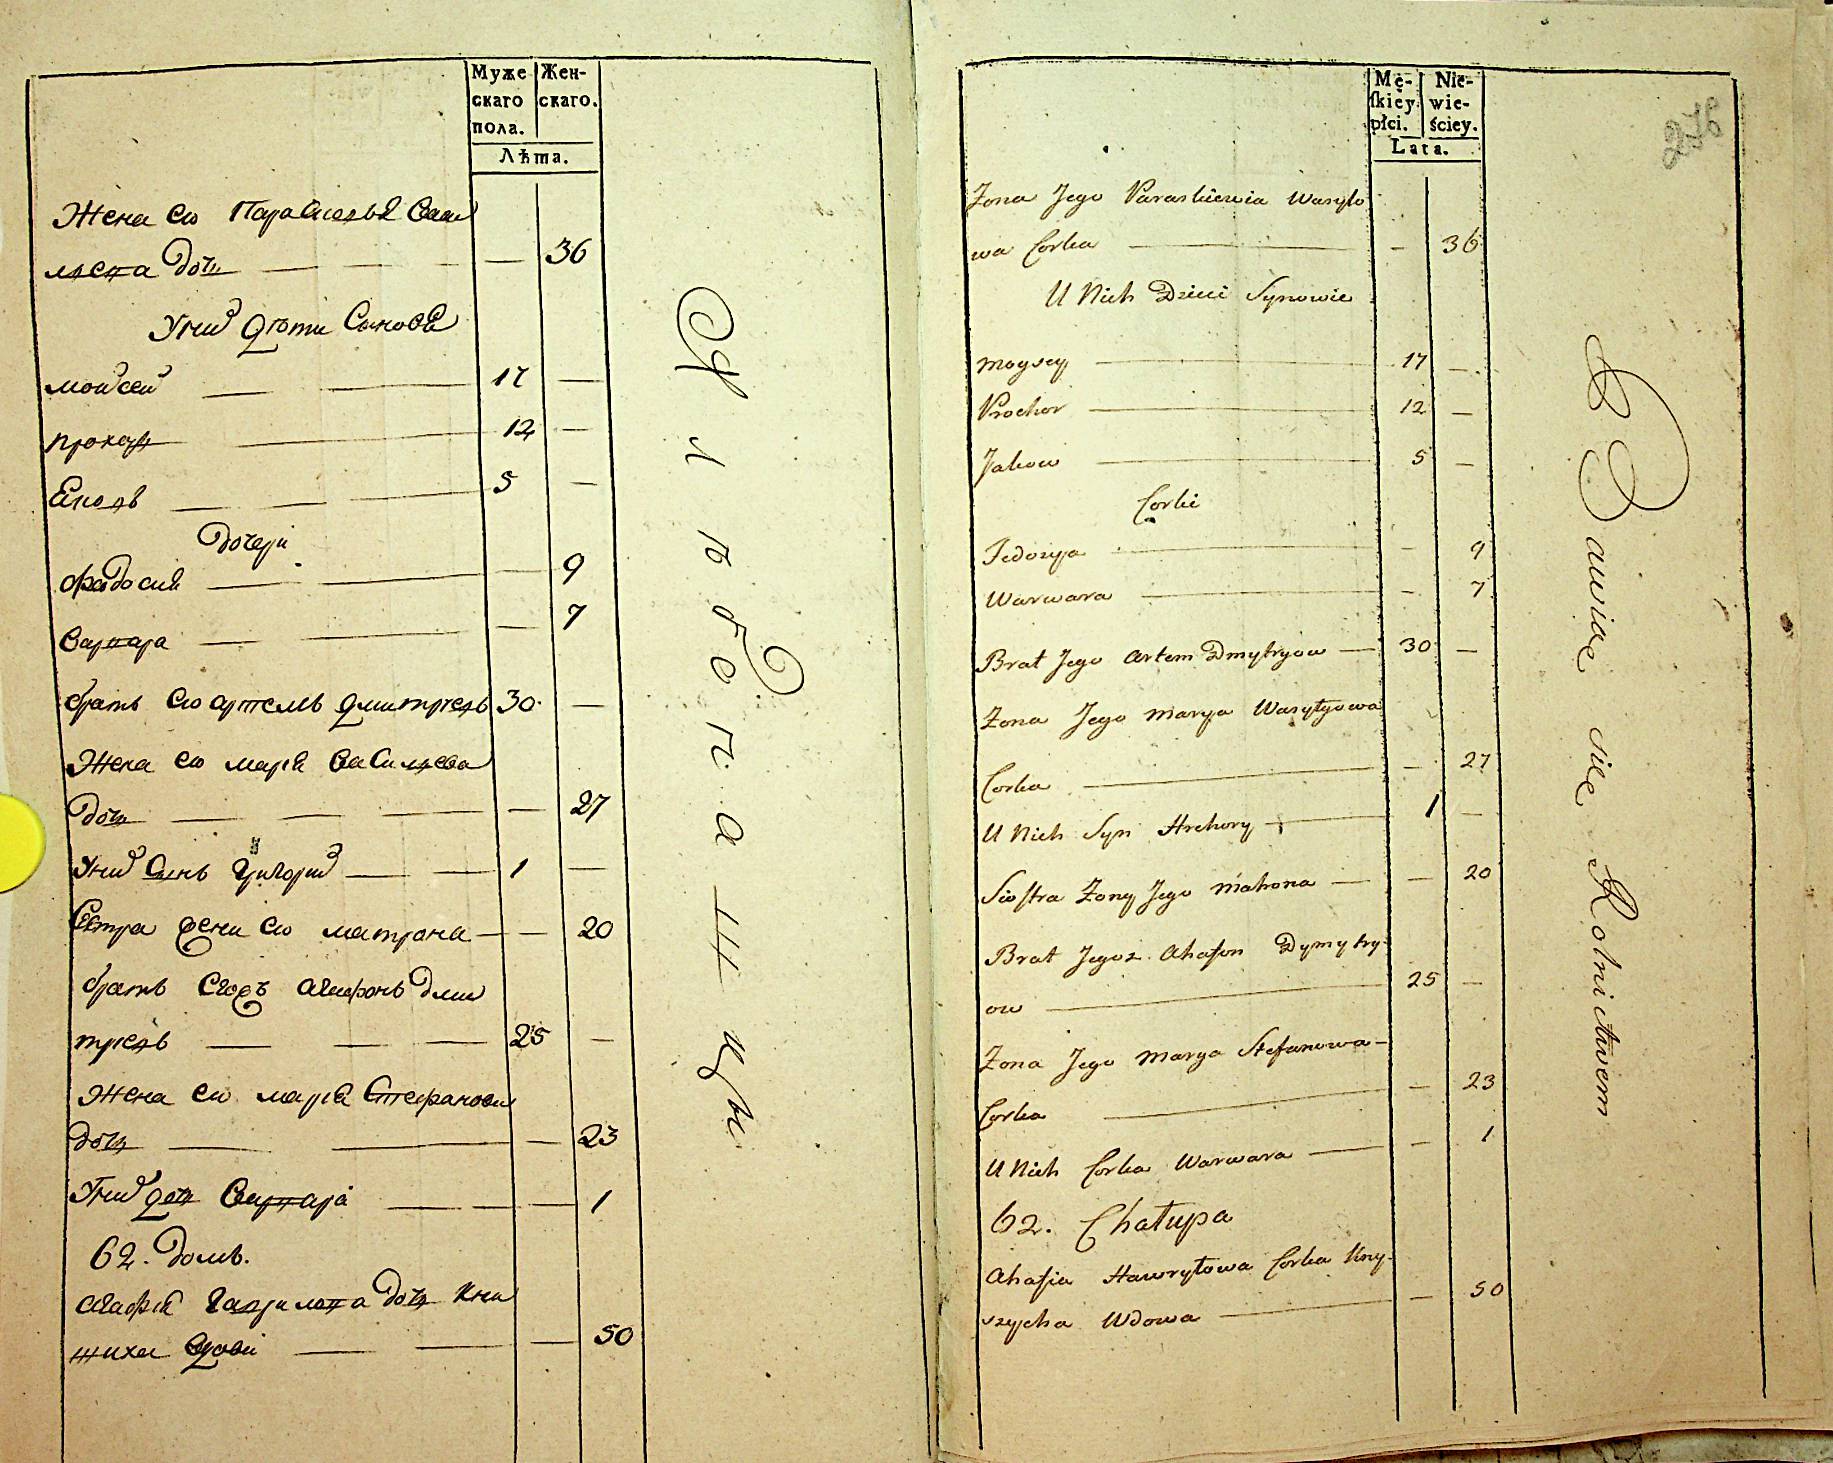 Муже
скаго
пола.
Жен-
скаго.
Лѣта.
Жена ею Параскевья Васи
льева дочь — — 36
У них дѣти Сыновья
мойсей — 17 —
прохор — 12 —
Яковъ — 5 —
дочери
Феодосия — — 9
Варвара — — 7
братъ ею артемъ дмитреевъ 30 —
Жена ею мария Васильева
дочь — — 27
У них Сынъ Григорий — 1 —
Сестра жены ею матрона — — 20
братъ Егожъ агафонъ дми
треевъ — 25 —
Жена ею мария Стефанова
дочь — — 23
У них дочь Варвара — — 1
62. домъ.
агафия гаврилова дочь Кни
шиха вдова — — 50
Хлѣбопашцы
Mę-
skiey
płci.
Nie-
wie-
ściey.
Lata.
276
Żona Jego Paraskiewia Wasylo
wa Corka — — 36
U Nich Dzieci Synowie
Moysey — 17 —
Prochor — 12 —
Jakow — 5 —
Corki
Fedosya — — 9
Warwara — — 7
Brat Jego Artem Dmytryow — 30 —
Żona Jego Marya Wasylyowa
Corka — — 27
U Nich Syn Hrehory — 1 —
Siostra Żony Jego Matrona — — 20
Brat Jegoz Ahafon Dymytry-
ow — 25 —
Żona Jego Marya Stefanowa —
Corka — — 23
U Nich Corka Warwara — — 1
62. Chałupa
Ahafia Hawryłowa Corka Kny-
szycha Wdowa — — 50
Bawiąc się Rolnictwem